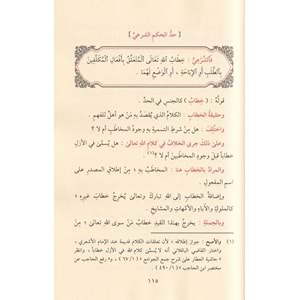 حَدُّ الحكمِ الشَّرعيِّ
فَالشَّرْعِيُّ : خِطَابُ اللهِ تَعَالَى الْمُتَعَلِّقُ بِأَفْعَالِ الْمُكَلَّفِينَ
بِالطَّلَبِ أَوِ الإِبَاحَةِ ، أَوِ الْوَضْعِ لَهُمَا .
قولُهُ : ( خِطَابُ ) كالجنسِ في الحدِّ .
وحقيقةُ الخطابِ : الكلامُ الذي يُقصَدُ بهِ مَنْ هوَ أهلٌ للفهمِ .
واختُلِفَ : هل مِنْ شرطِ التسميةِ بهِ وجودُ المخاطَبِ أم لا ؟
وعلىٰ ذلكَ جرى الخلافُ في كلامِ اللهِ تعالىٰ : هل يُسمَّىٰ في الأزلِ
خطاباً قبلَ وجودِ المخاطَبينَ أم لا ؟(١)
والمرادُ بالخطابِ هنا : المخاطَبُ بهِ ؛ مِنْ إطلاقِ المصدرِ علىٰ
اسمِ المفعولِ .
وإضافةُ الخطابِ إلى اللهِ تباركَ وتعالىٰ يُخرِجُ خطابَ غيرِهِ ؛
كالملوكِ والآباءِ والأمَّهاتِ والمشايخِ .
وبالجملةِ : يخرجُ بهذا القيدِ خطابُ مَنْ سوى اللهِ تعالىٰ ؛ مِنَ
(١) والأصح : جواز إطلاقه ؛ لأن تعلقات الكلام قديمة عند الإمام الأشعري ،
واختار القاضي الباقلاني أنه لا يسمى في الأزل خطاباً ، وانظر
« حاشية العطار على شرح جمع الجوامع » ( ٦٧/١ ) ، و« رفع الحاجب عن
مختصر ابن الحاجب » ( ٤٩٠/١ ) .
١١٥